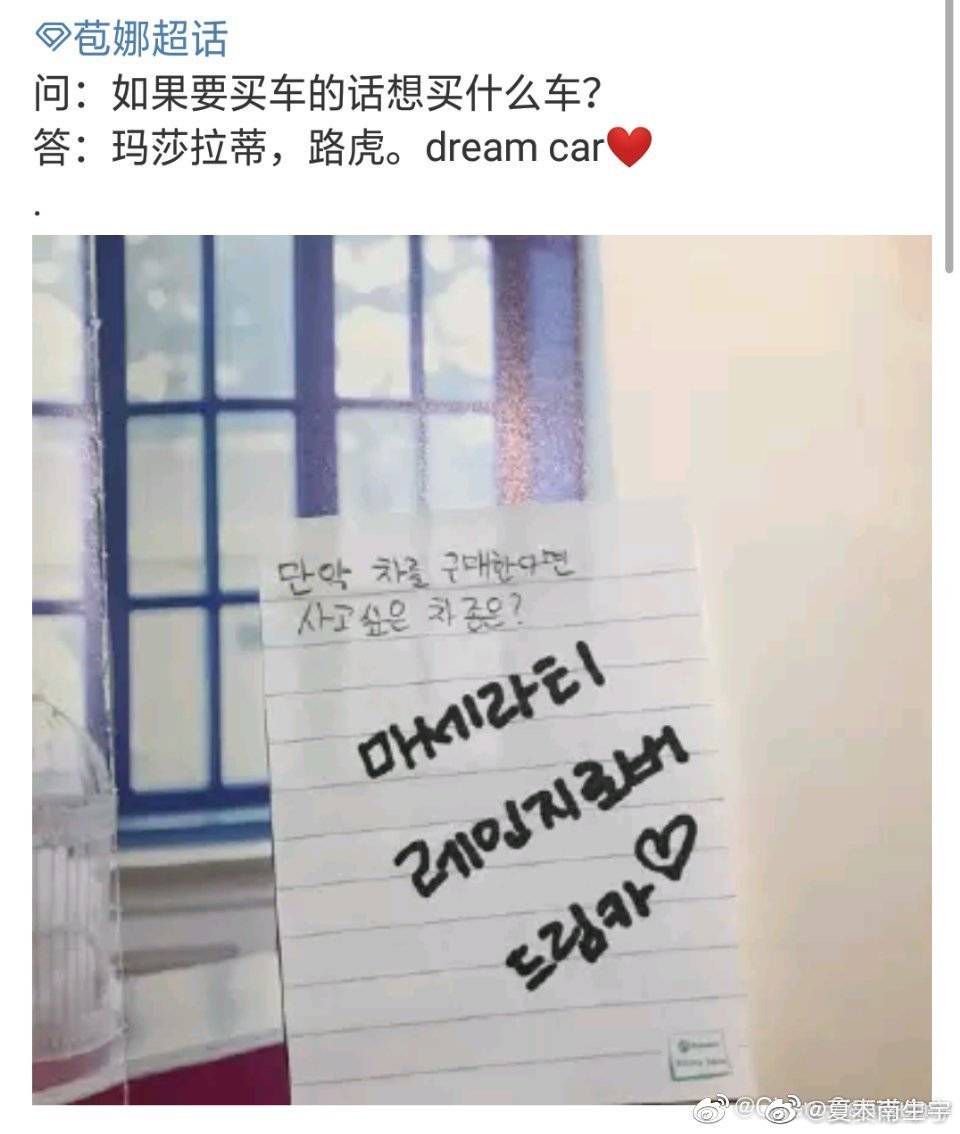 苞娜超话
问：如果要买车的话想买什么车？
答：玛莎拉蒂，路虎。dream car❤️
.
만약 차를 구매한다면
사고싶은 차 종은?
마세라티
레인지로버
드림카♡
@夏泰南生宇